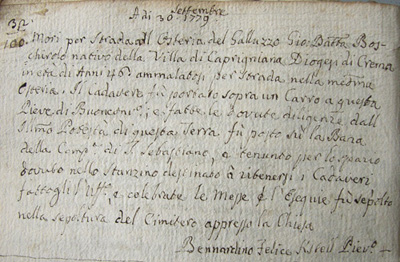 Settembre
A dì 30 1779
Morì per Strada all Osteria del Galluzzo Gio: Batta Bos-
chirolo nativo della Villa di Caprigniana Diogesi di Crema
in età di Anni 46: ammalatosi per Strada nella medma
Osteria. Il Cadavere fù portato sopra un Carro a questa
Pieve di e fatte le Dovute diligenze dall
Illmo Potestà di questa Terra fù posto sù la Bara
della Compa di S. Sebastiano, e tenendo per lo spazio
dovuto nello Stanzino destinato a ritenersi i Cadaveri
fattogli l' e celebrate le Messe e l'Esequie fù sepolto
nella sepoltura del Cimitero appresso la Chiesa
Bennardino Felice Pievo